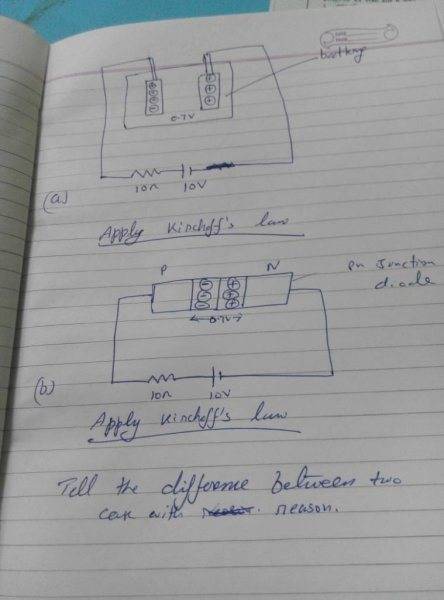 0.7V
10Ω 10V
(a)
Apply Kirchoff's law
P N
pn Junction
diode
0.7V
10Ω 10V
(b)
Apply Kirchoff's law
Tell the difference between two
case with reason.